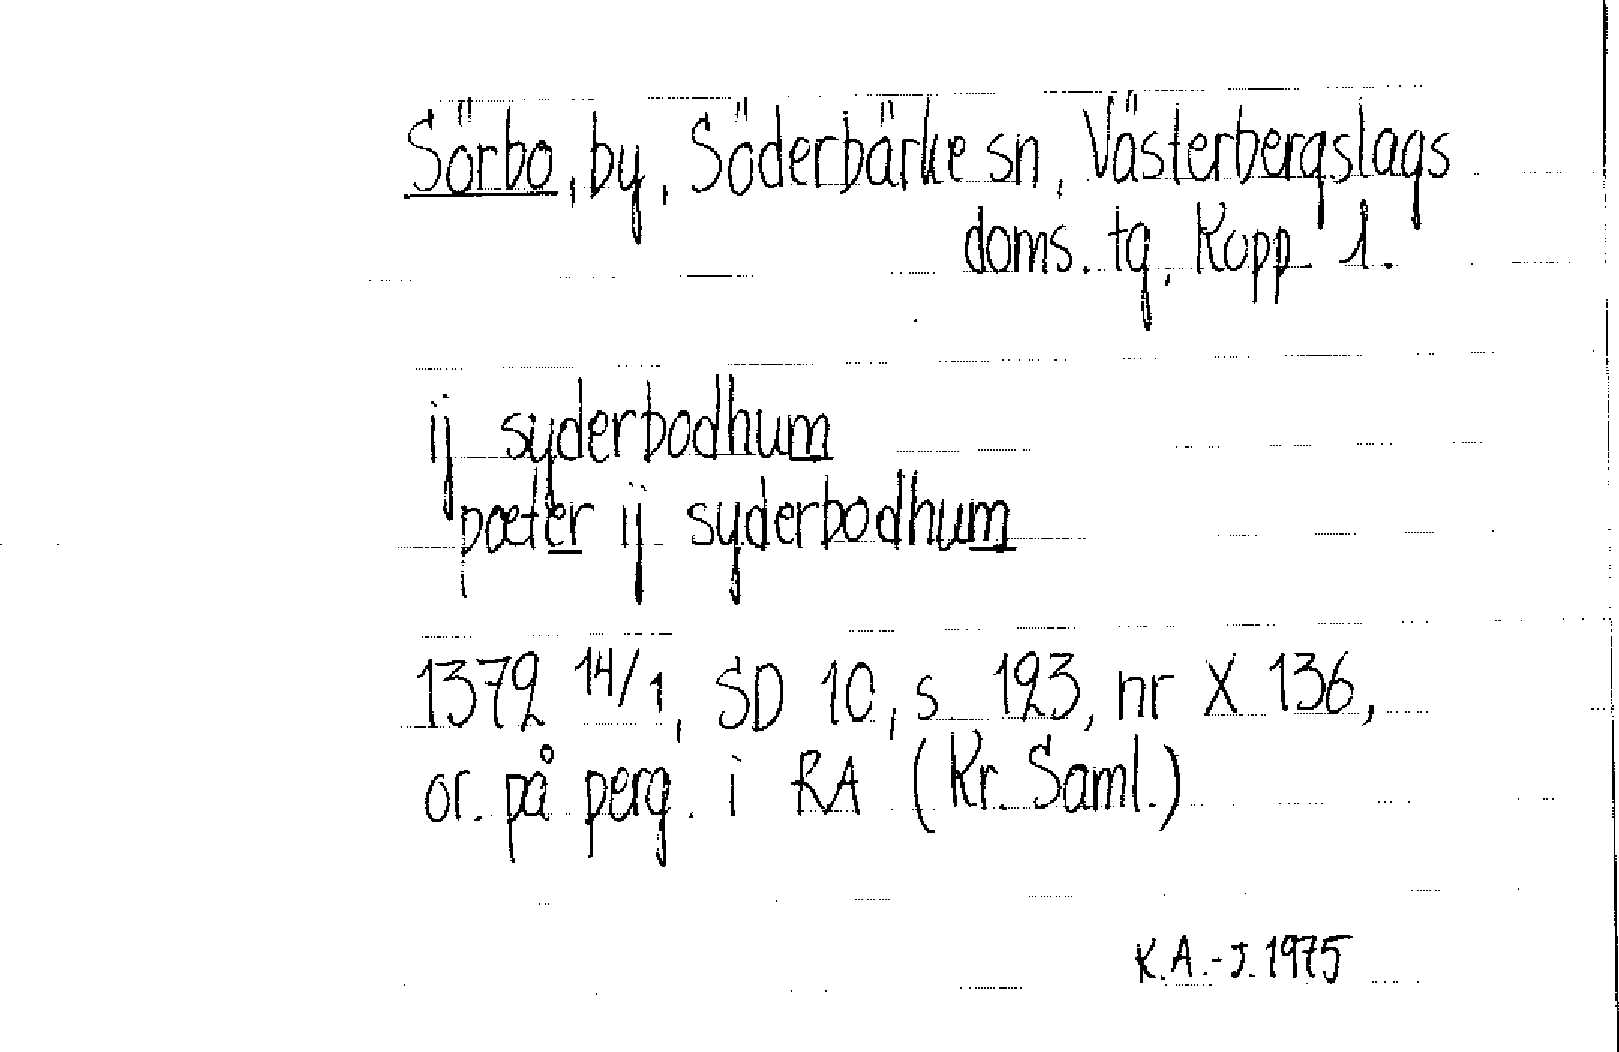 Sörbo, by, Söderbärke sn, Västerbergslags
doms. tg, Kopp l.
ij syderbodhum
pæter ij syderbodhum
1372 14/1, SD 10, s 123, nr X 136,
or. på perg. i RA (Kr. Saml.)
K.A.-J. 1975